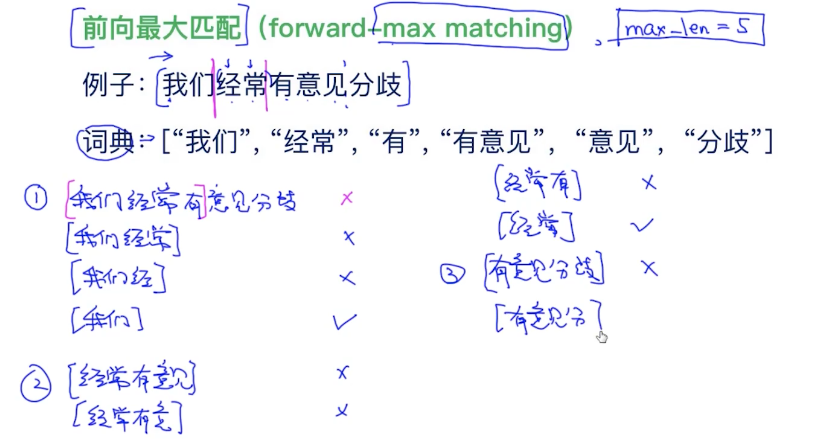 前向最大匹配（forward-max matching）, max_len = 5
例子：我们经常有意见分歧
词典：[“我们”, “经常”, “有”, “有意见”, “意见”, “分歧”]
① [我们经常有]意见分歧 ×
[我们经常] ×
[我们经] ×
[我们] ✓
② [经常有意见] ×
[经常有意] ×
[经常有] ×
[经常] ✓
③ [有意见分歧] ×
[有意见分]